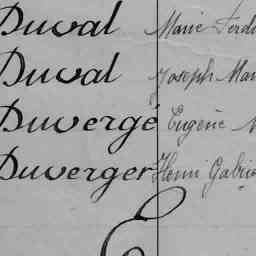 Duval Marie Ferdi
Duval Joseph Mar
Duvergé Eugène M
Duverger Henri Gabrie
E